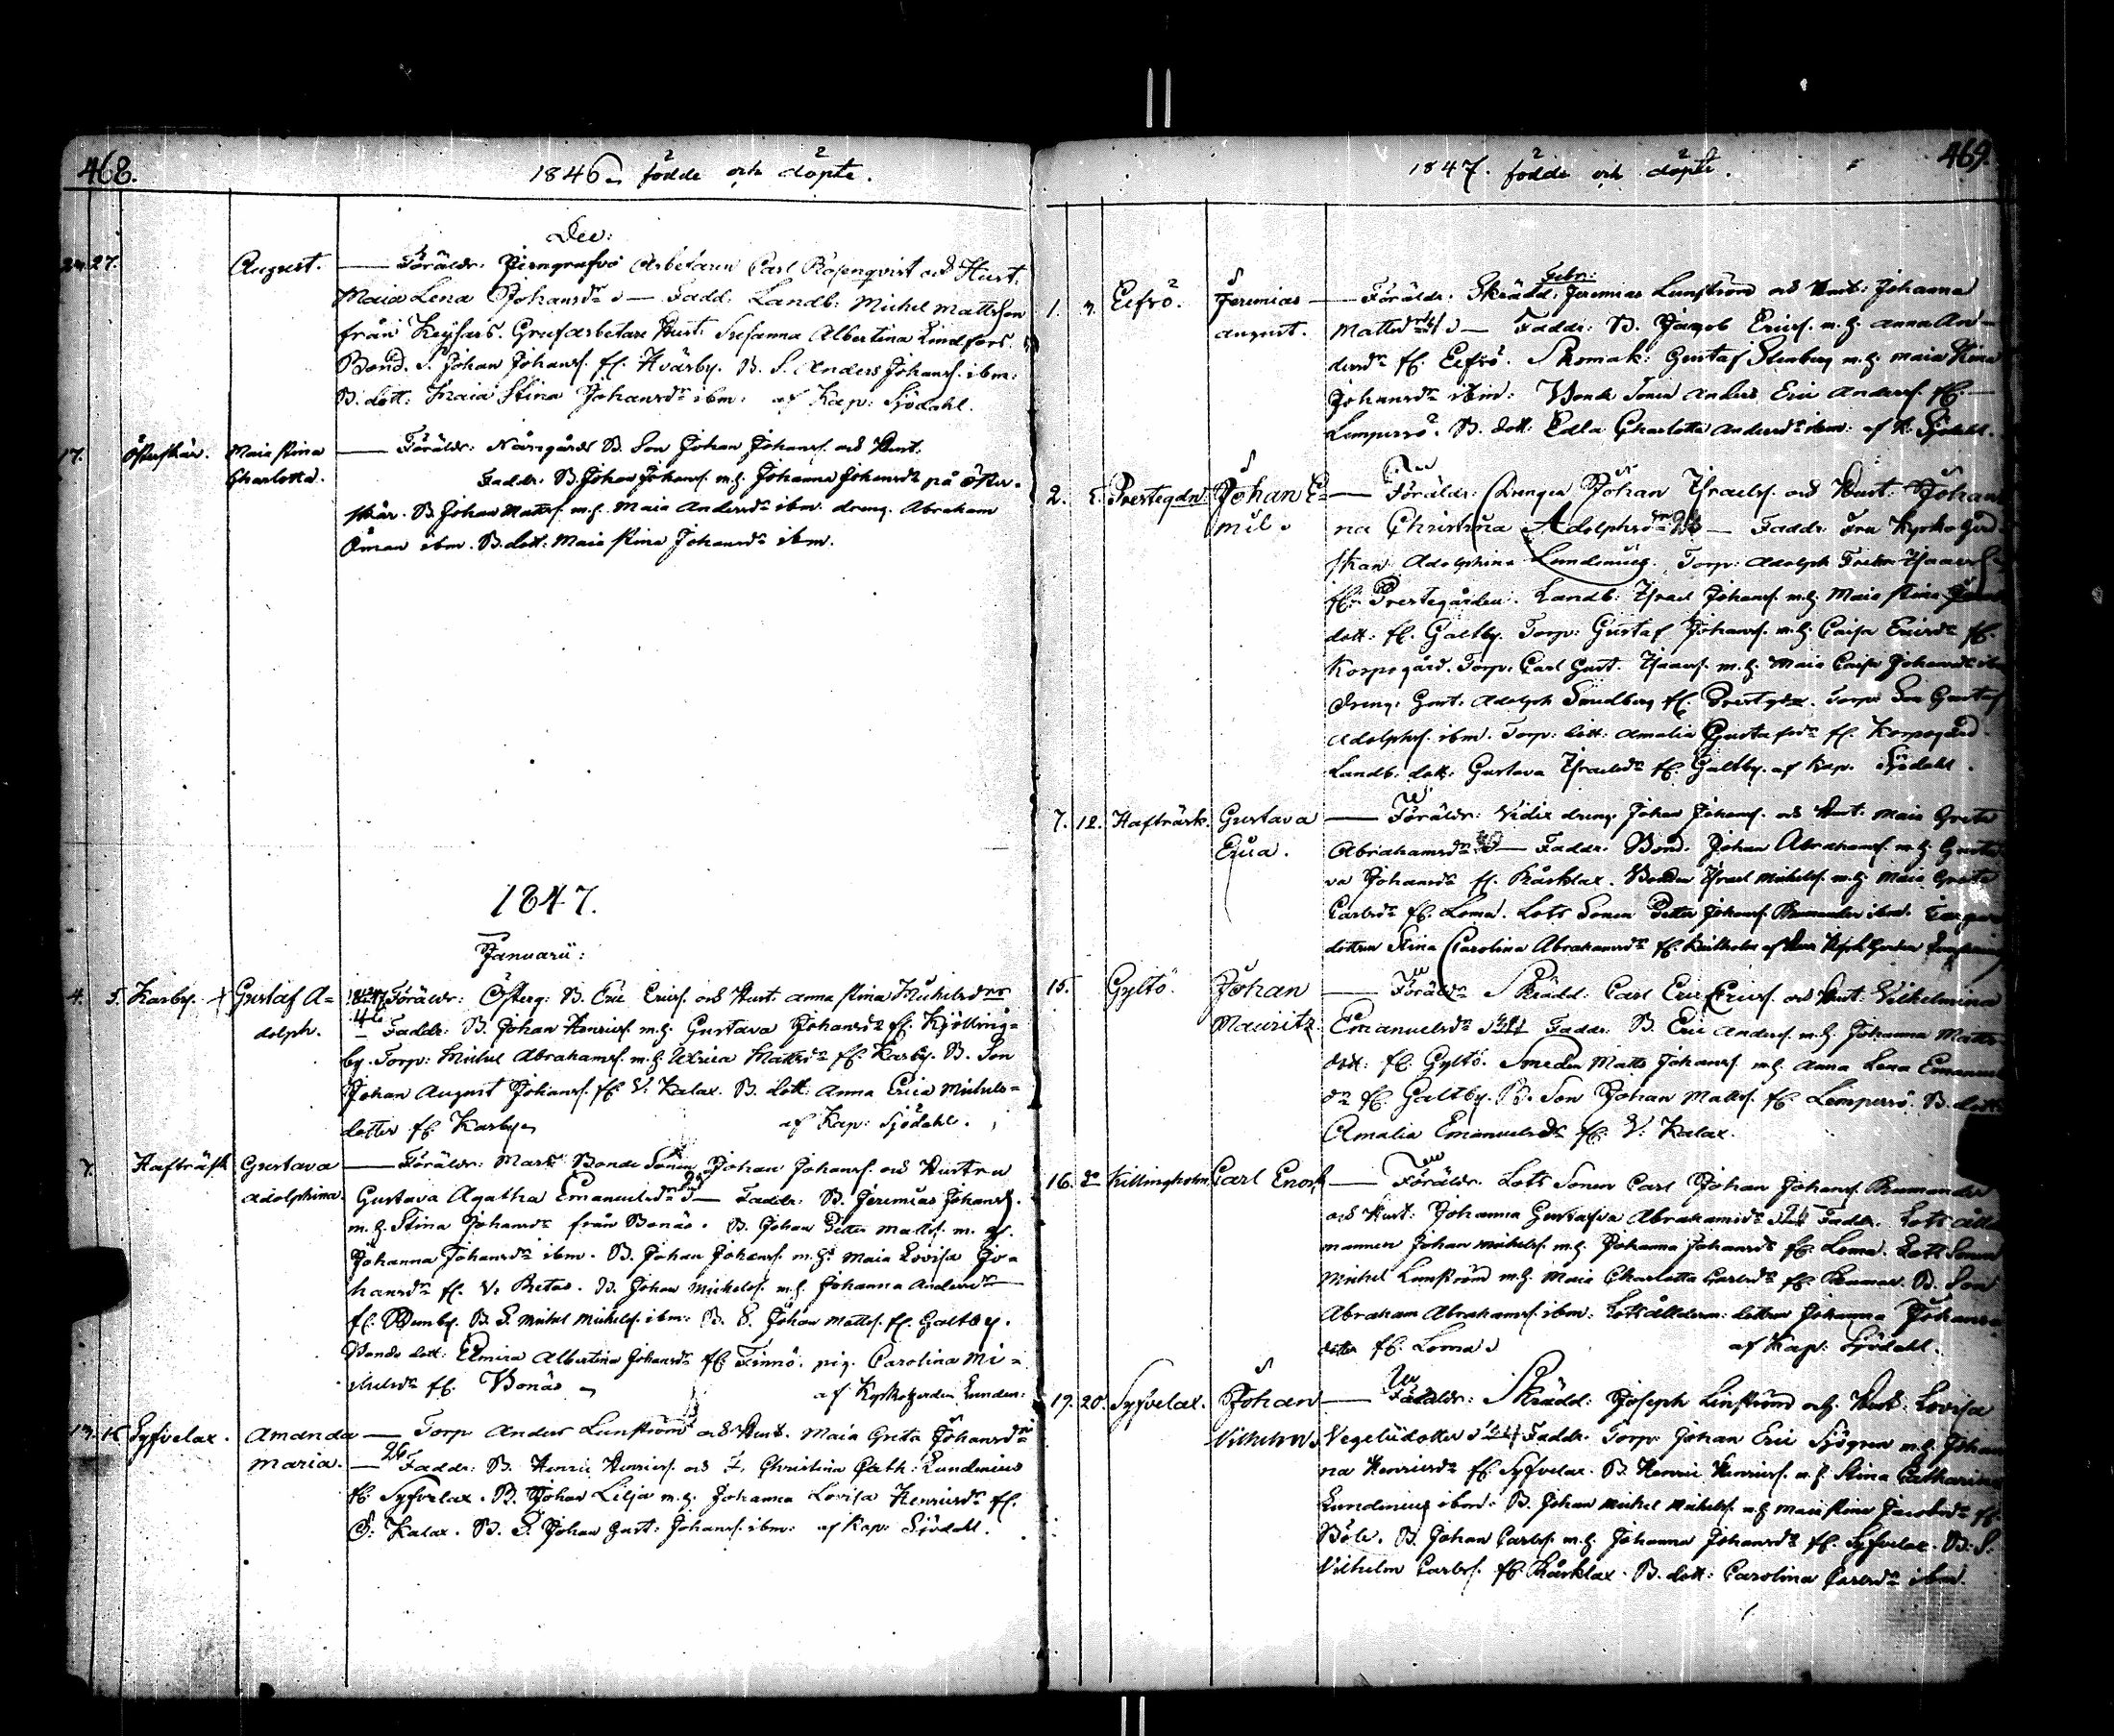 468.
1846 födde och döpte.
Dec:
24. 27. August. — Föräldr. Arbetaren Carl Rosenqvist och Hust.
Maia Lena Johansdr — Fadd. Landb: Michel Mattsson
från Keysars. Grufarbetare Hust: Susanna Albertina Lindfors.
Bond. S. Johan Johanss. fr. Hvarby. B. S. Anders Johanss. ibm:
B. dott: Maia Stina Johansdr ibm: af Kap: Sjödahl.
17. Österskär. Maia Stina — Föräldr: B. Son Johan Johanss. och Hust.
Charlotta. Faddr. B. Johan Johanss. m.h. Johanna Johansdr på Öster-
skär. B. Johan Matss. m.h. Maia Andersdr ibm. dreng. Abraham
Öman ibm. B. dott: Maia Stina Johansdr ibm.
1847.
Januarii:
4. 5. Karby. Gustaf A= Föräldr: B. Eric Erics. och Hust: Anna Stina Michelsdr
dolph. Faddr: B. Johan Henrics. m.h. Gustava Johansdr fr. Kjölling-
by. Torp: Michel Abrahams. m.h. Ulrica Mattsdr fr. Karby. B. Son
Johan August Johanss. fr. V. Kalax. B. dott: Anna Erica Michels-
dotter fr. Karby af Kap: Sjödahl.
7. Hafträsk Gustava — Föräldr: Bonde Sonen Johan Johanss. och Hustru
Adolphina. Gustava Agatha Emanuelsdr — Faddr: B. Jeremias Johanss.
m.h. Stina Johansdr från Bonäs. B. Johan Petter Matts. m.h.
Johanna Johansdr ibm. B. Johan Johanss. m.h. Maia Lovisa Jo-
hansdr fr. V. Retais. B. Johan Michels. m.h. Johanna Andersdr
fr. Rumby. B. S. Michel Michels. ibm: B. S. Johan Matts. fr. Galtby.
Bonde dott: Elmira Albertina Johansdr fr. Finnö. pig. Carolina Mi-
chelsdr fr. Bonäs af Kyrkoherden Lunden:
13. 15. Syfvelax. Amanda — Torp Anders Lunström och Hust. Maia Greta Johansdr
Maria. — 26 Faddr: B. Henric Henrics. och F. Christina Cath: Lundenius
fr. Syfvelax. B. Johan Lilja m.h. Johanna Lovisa Henricsdr fr.
Ö: Kalax. B. S. Johan Gust: Johanss. ibm: af Kap: Sjödahl.
469.
1847. födde och döpte.
Febr:
1. Eefsö. Jeremias — Föräldr: Skrädd: Jeremias Lunström och Hust: Johanna
August. Mattsdr — Faddr: B. Jacob Erics. m.h. Anna An-
dersdr fr. Eefsö. Skomak: Gustaf Stenberg m.h. Maia Stina
Johansdr ibm: Bonde Sonen Anders Eric Anderss. fr.
Lempersö. B. dott: Edla Charlotta Andersdr ibm: af K. Sjödahl.
2. Prestegdn: Johan E= — Föräldr: Drengen Johan Israels. och Hust: Johan-
mil. na Christina Adolphsdr — Faddr: Fru Kyrkoherd-
skan Adolphina Lundenius. Torp: Adolph Fredr: Isaacs.
fr: Prestegården. Landb: Israel Johanss. m.h. Maia Stina
dott: fr. Galtby. Torp: Gustaf Johanss. m.h. Caisa Ericsdr fr.
Korpogård. Torp: Carl Gust. Isaacs. m.h. Maia Caisa Johansdr ibm
dreng: Gust. Adolph Sundberg fr. Prestgdn. Torp: Son Gustaf
Adolphs. ibm. Torp: dott: Amalia Gustafsdr fr. Korpogård.
Landb. dott. Gustava Israelsdr fr. Galtby. af Kap. Sjödahl.
7. 12. Hafträsk. Gustava — Föräldr: dreng Johan Johanss. och Hust: Maia Greta
Erica. Abrahamsdr — Faddr. Bond. Johan Abrahamss. m.h. Gusta-
va Johansdr fr. Kårklax. Bonden Israel Michels. m.h. Maia Greta
Carlsdr fr. Loma. Lots Sonen Petter Johanss. ibm.
dottren Stina Carolina Abrahamsdr fr.
15. Gyltö. Johan — Föräldr Skrädd: Carl Eric Erics. och Hust: Vilhelmina
Mauritz. Emanuelsdr Faddr. B. Eric Anderss. m.h. Johanna Matts-
dott: fr. Gyltö. Smeden Matts Johanss. m.h. Anna Lena Emanuels-
dr fr. Galtby. B. Son Johan Matts. fr. Lempersö. B. dott:
Amalia Emanuelsdr fr. V: Kalax.
16. Killingholm. Carl Enoch — Föräldr. Lots Sonen Carl Johan Johanss.
och Hust: Johanna Gustafva Abrahamsdr Faddr. Lots ålder-
mannen Johan Michels. m.h. Johanna Johansdr fr. Loma. Lots Sonen
Michel Lunström m.h. Maia Charlotta Carlsdr fr. B. Son
Abraham Abrahamss. ibm: Lotsålderm: dottren Johanna Johans-
dotter fr. Loma af Kap: Sjödahl.
19. 20. Syfvelax. Johan — Föräldr: Skrädd: Joseph Linström och Hust: Lovisa
Vilhelm. Faddr. Torp. Johan Eric Sjögren m.h. Johan-
na Henricsdr fr. Syfvelax. B. Henric Henrics. m.h. Stina Catharina
Lundenius ibm: B. Johan Michel Michels. m.h. Maia Stina Jacobsdr fr.
Böle. B. Johan Carls. m.h. Johanna Johansdr fr. Syfvelax. B. S.
Vilhelm Carls. fr. Kårklax. B. dott: Carolina Carlsdr ibm.